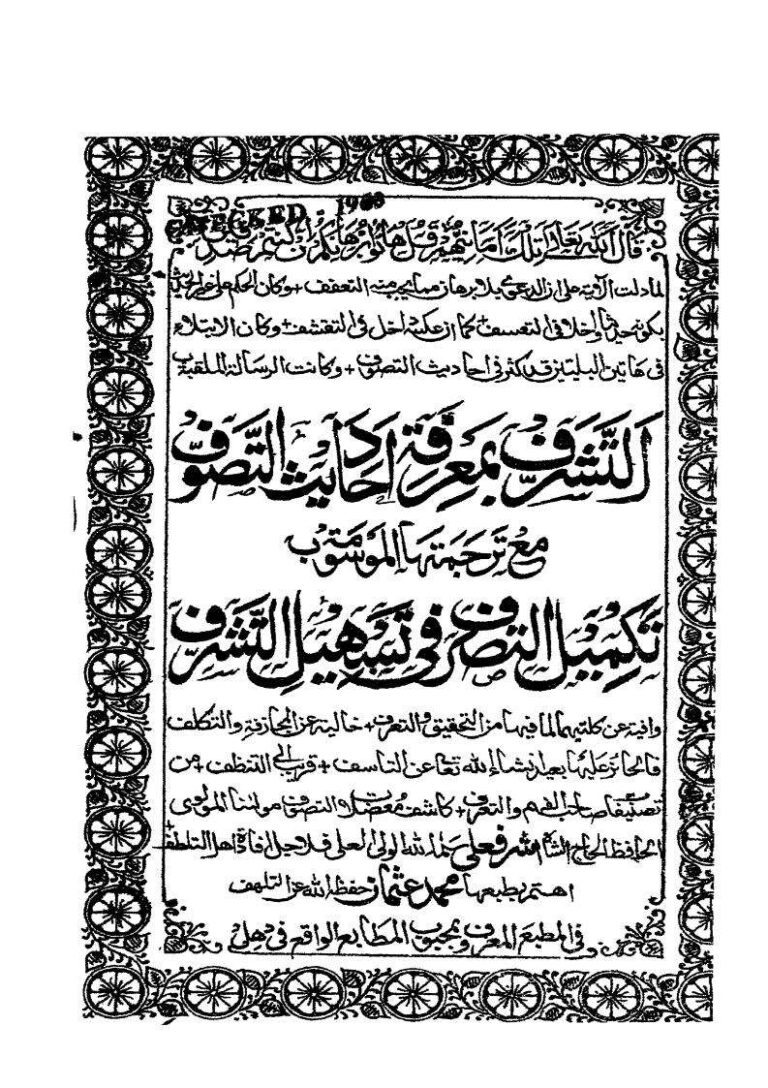 CHECKED 1968
قال الله تعالى تلك امانيهم قل هاتوا برهانكم ان كنتم صدقين
لما دلت الآية على ان الدعوى بلا برهان مما يجب منه التعفف + وكان الحكم على غير الحديث
بكونه حديثا داخلا فى التعسف + كما ان عكسه داخل فى التقشف + وكان الابتلاء
فى هاتين البليتين قد كثر فى احاديث التصوف + وكانت الرسالة الملقبة ب
التَّشَرُّف بِمَعرِفَةِ اَحَادِيثِ التَّصَوُّف
مع ترجمتها الموسومة ب
تكميل التصرف فى تسهيل التشرف
وافية عن كلتيهما لما فيها من التحقيق والتعرف + خالية عن المجازفة والتكلف
فالحائز عليها بعيد ان شاء الله تعالى عن التاسف + قريب الى التنظف + من
تصنيف صاحب الفهم والتعرف + كاشف معضلات التصوف مولانا المولوى
الحافظ الحاج الشاه اشرف على سلمه الله الولى العلى فلاجل افادة اهل التلطف +
اهتم بطبعها محمد عثمان حفظه الله عن التلهف
وفى المطبع المعروف بمحبوب المطابع الواقع فى دهلى